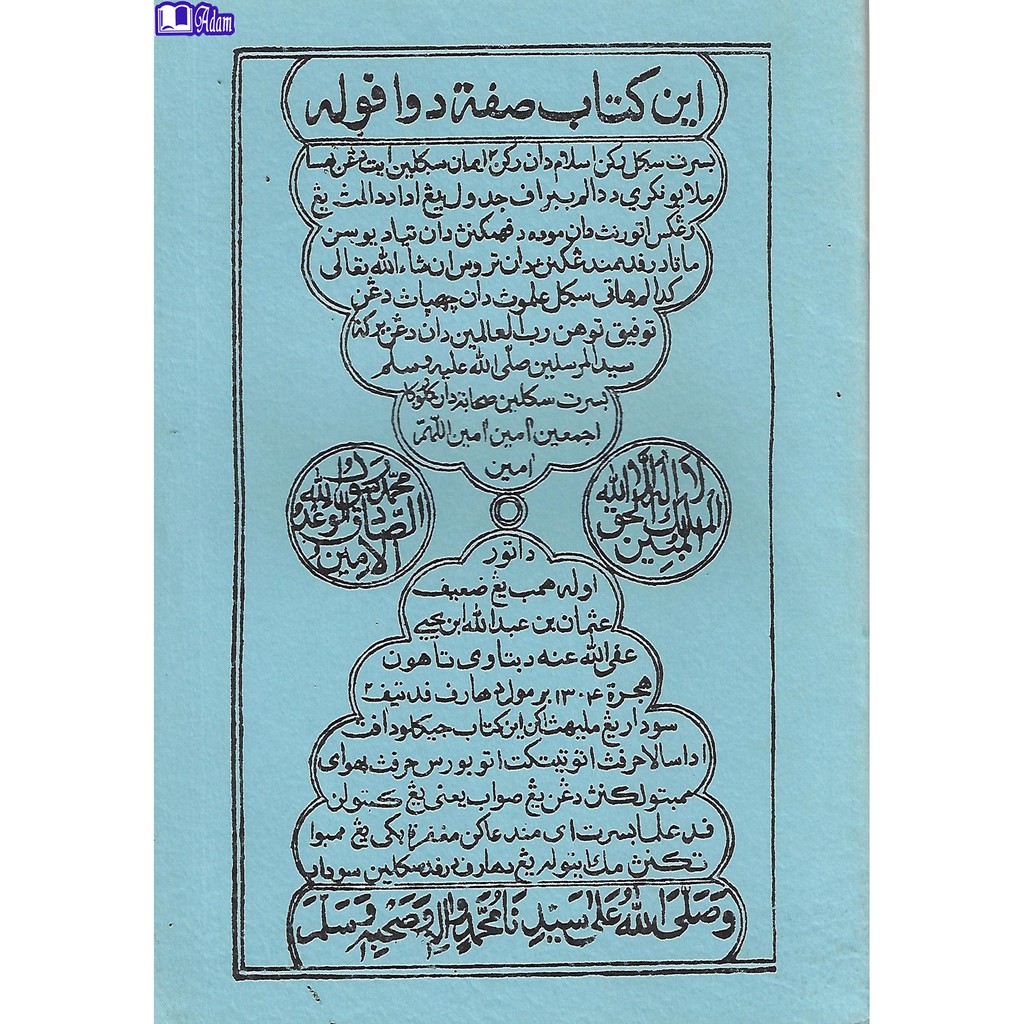 Adam
اين كتاب صفة دوا فوله
بسرت سݢل ركن اسلام دان ركن٢ ايمان سݢلين ايت دڠن بهسا
ملايو نكري ددالم ببراف جدول يڠ اد ددالمث يڠ
رڠكس اتورنث دان موده دفهمكنث دان تياد بوسن
مات درفد ممندڠكنث دان تروس ان شاء الله تعالى
كدالم هاتي سݢل علموث دان چهيات دڠن
توفيق توهن رب العالمين دان دڠن بركة
سيد المرسلين صلّى الله عليه وسلم
بسرت سكلين صحابة دان كلوركا
اجمعين امين امين اللّهمّ
امين
لا إله إلا الله الملك الحق المبين
محمّد رسول الله الصّادق الوعد الامين
داتور
اوله همب يڠ ضعيف
عثمان بن عبدالله ابن يحيى
عفى الله عنه دبتاوي تاهون
هجرة ١٣٠٤ برمول دهارف فد تيف٢
سودار يڠ مليهت اكن اين كتاب جيكالو دافت
اد ساله حرفث اتو تيتكث اتو بورس حرفث بهواي
ممبتولكنث دڠن يڠ صواب يعني يڠ كبتولن
فد علما بسرت اي مندعاكن مغفرة بكي يڠ ممبوا
تكنث مك ايتوله يڠ دهارف درفد سكلين سودار
وَصَلَّى اللهُ عَلَى سَيِّدِنَا مُحَمَّدٍ وَآلِهِ وَصَحْبِهِ وَسَلَّمَ